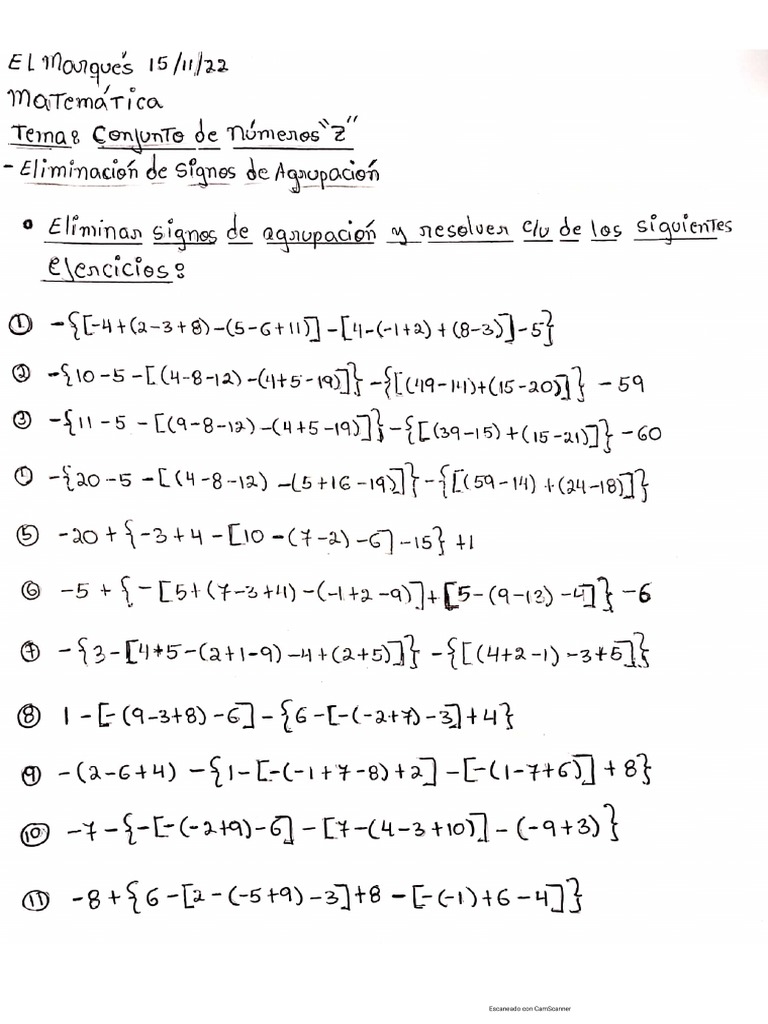 El Marqués 15/11/22
Matemática
Tema: Conjunto de Números "Z"
- Eliminación de Signos de Agrupación
• Eliminar signos de agrupación y resolver c/u de los siguientes
ejercicios:
① -{[-4+(2-3+8)-(5-6+11)]-[4-(-1+2)+(8-3)]-5}
② -{10-5-[(4-8-12)-(4+5-19)]}-{[(49-14)+(15-20)]}-59
③ -{11-5-[(9-8-12)-(4+5-19)]}-{[(39-15)+(15-21)]}-60
④ -{20-5-[(4-8-12)-(5+16-19)]}-{[(59-14)+(24-18)]}
⑤ -20+{-3+4-[10-(7-2)-6]-15}+1
⑥ -5+{-[5+(7-3+4)-(-1+2-9)]+[5-(9-12)-4]}-6
⑦ -{3-[4+5-(2+1-9)-4+(2+5)]}-{[(4+2-1)-3+5]}
⑧ 1-[-(9-3+8)-6]-{6-[-(-2+7)-3]+4}
⑨ -(2-6+4)-{1-[-(-1+7-8)+2]-[-(1-7+6)]+8}
⑩ -7-{-[-(-2+9)-6]-[7-(4-3+10)]-(-9+3)}
⑪ -8+{6-[2-(-5+9)-3]+8-[-(-1)+6-4]}
Escaneado con CamScanner